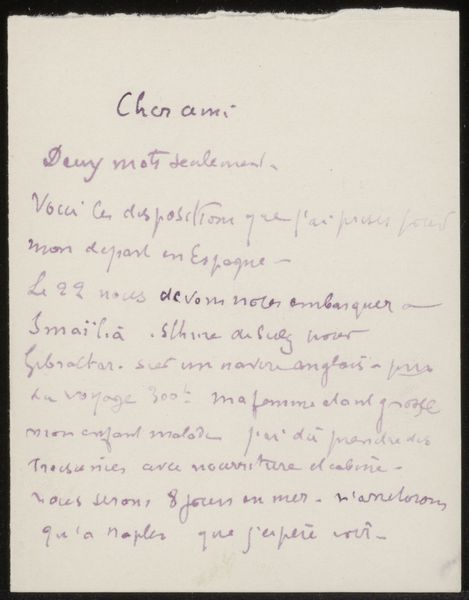 Cher ami
Deux mots seulement.
Voici les dispositions que j'ai prises pour
mon depart en Espagne –
Le 22 nous devons nous embarquer a
Ismaïlia . de Suez pour
Gibraltar. sur un navire anglais – prix
du voyage 300 ma femme etant grosse
mon enfant malade j'ai dû prendre des
troisiemes avec nourriture et cabine –
nous serons 8 jours en mer – n'arreterons
qu'a Naples que j'espère voir –